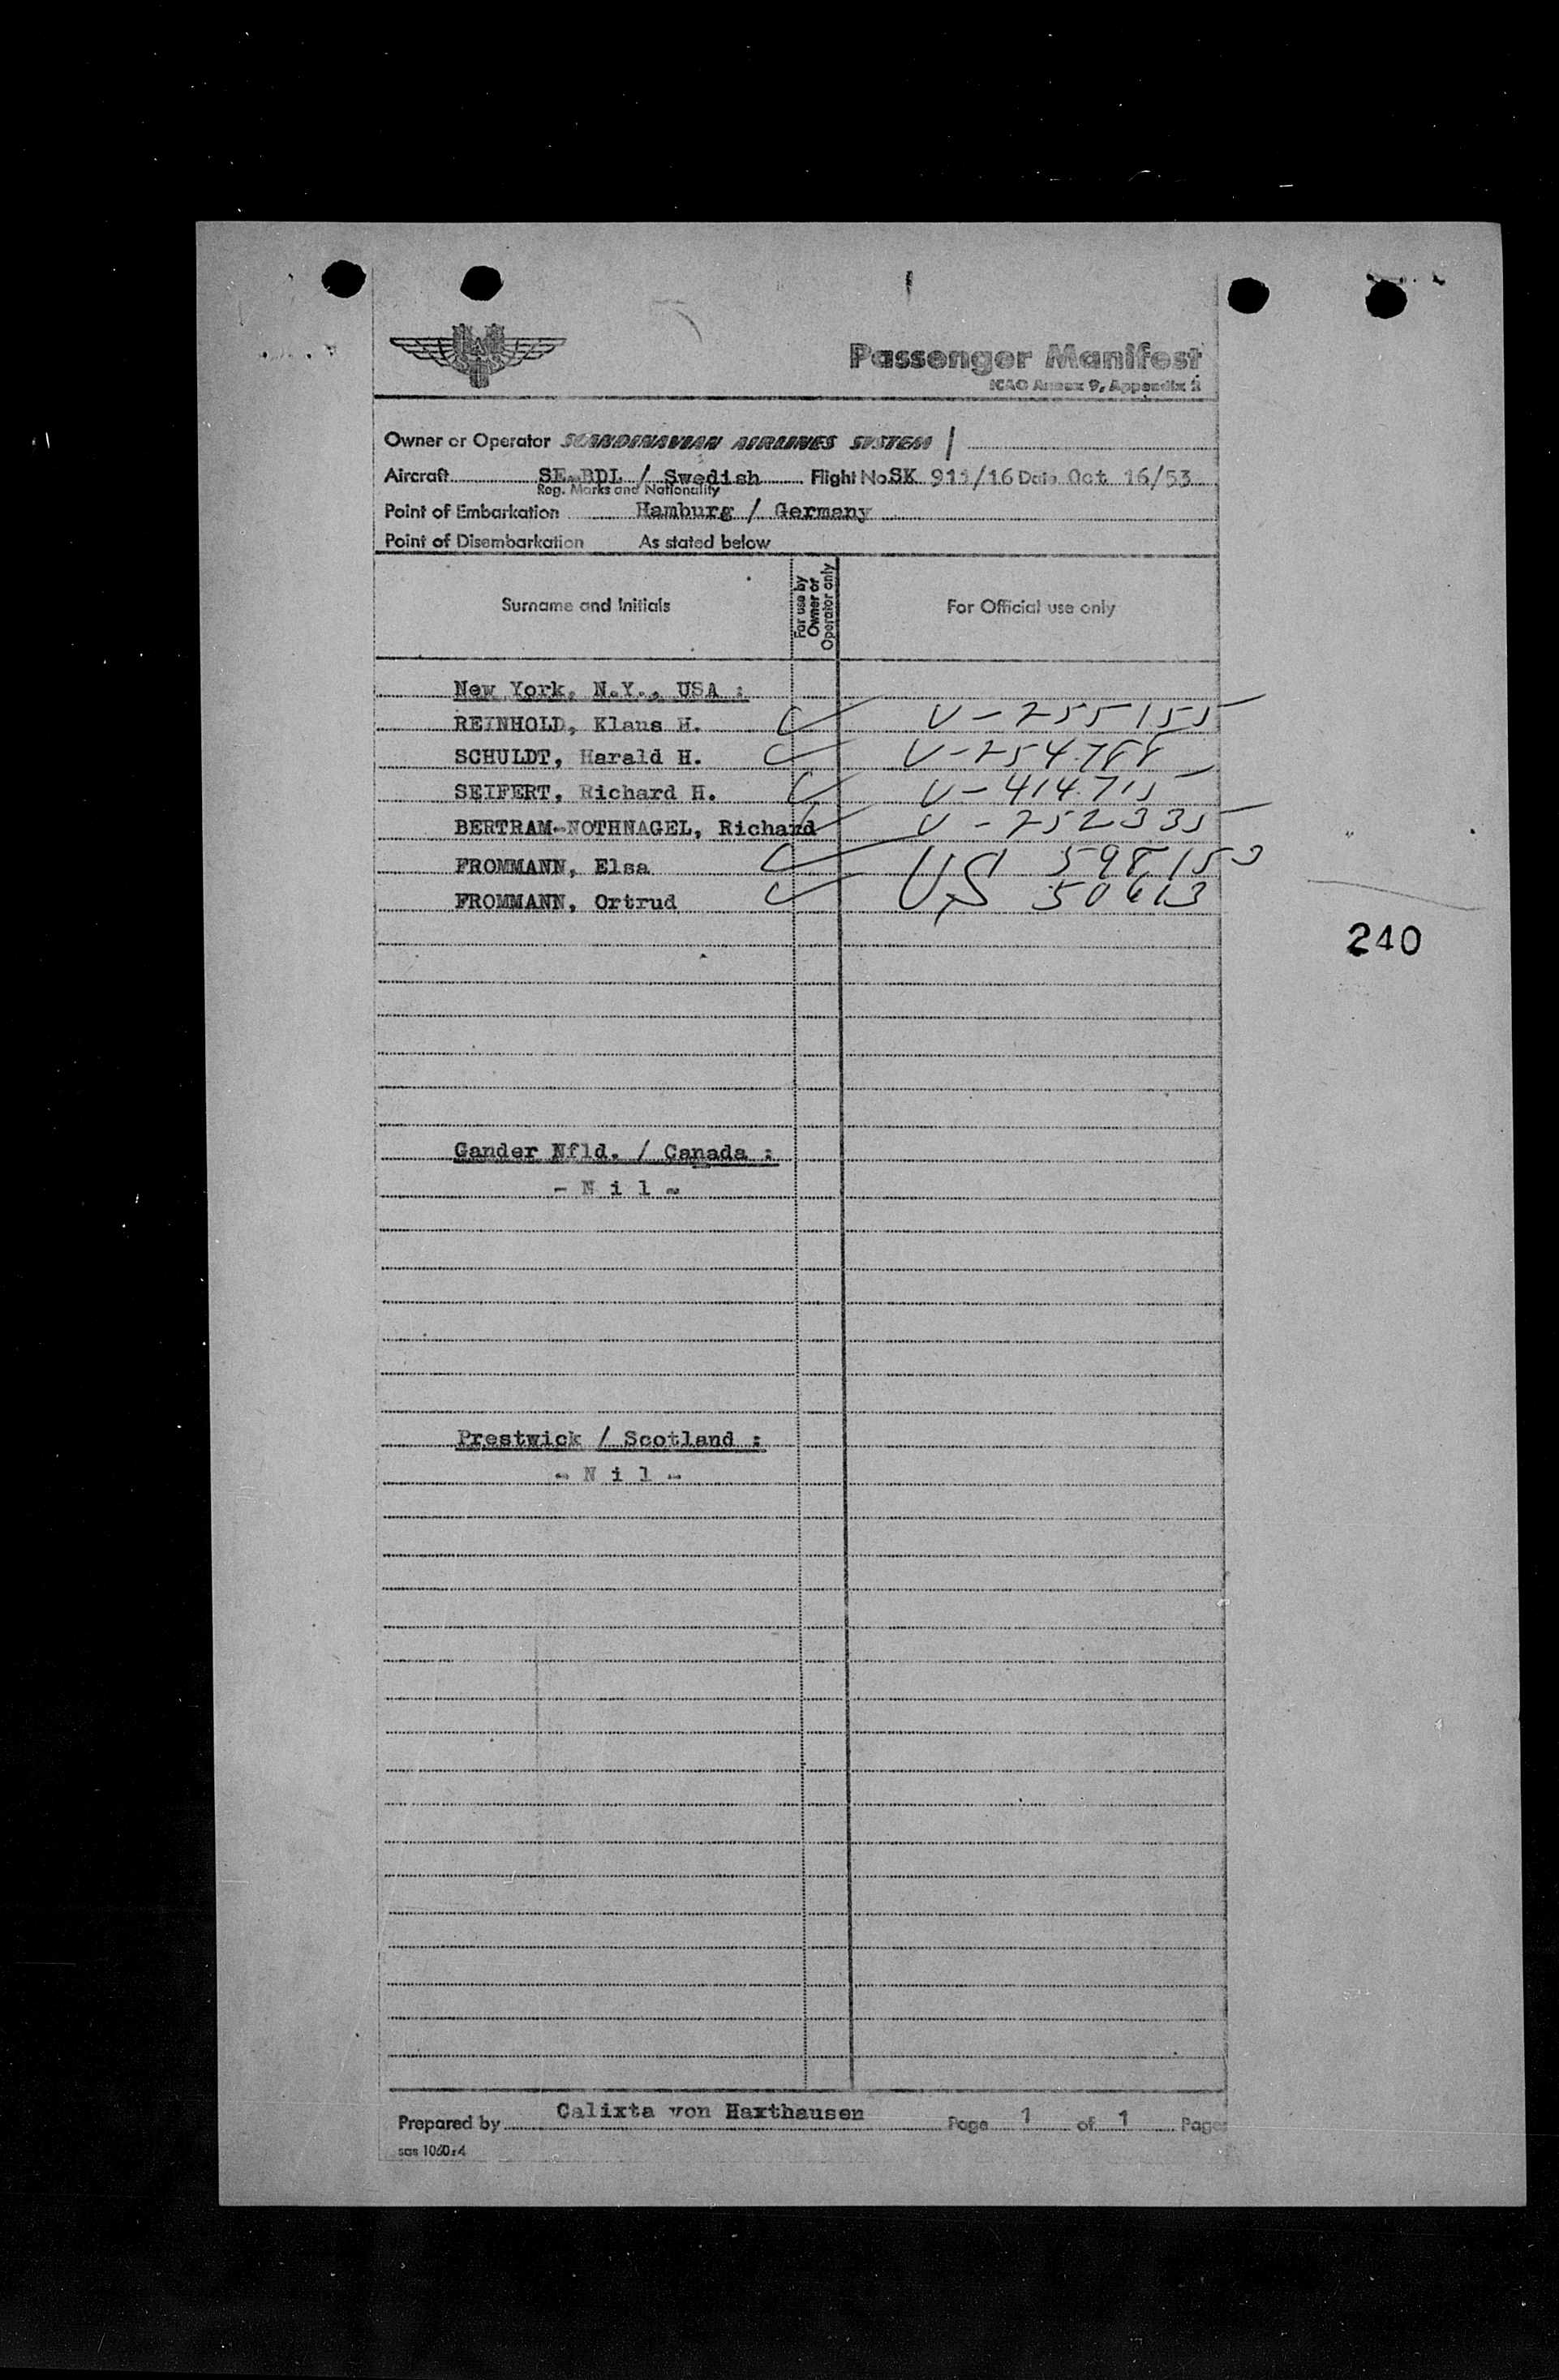 Passenger Manifest
ICAO Annex 9, Appendix 2
Owner or Operator SCANDINAVIAN AIRLINES SYSTEM
Aircraft SE-BDL / Swedish Flight No. SK 911/16 Date Oct 16/53
Reg. Marks and Nationality
Point of Embarkation Hamburg / Germany
Point of Disembarkation As stated below
Surname and Initials
For use by Owner or Operator only
For Official use only
New York, N.Y., USA :
REINHOLD, Klaus H. V-255155
SCHULDT, Harald H. V-254788
SEIFERT, Richard H. V-414715
BERTRAM-NOTHNAGEL, Richard V-252335
FROMMANN, Elsa US 598150
FROMMANN, Ortrud 50613
240
Gander Nfld. / Canada :
- N i l -
Prestwick / Scotland :
- N i l -
Prepared by Calixta von Haxthausen Page 1 of 1 Pages
sas 1060:4